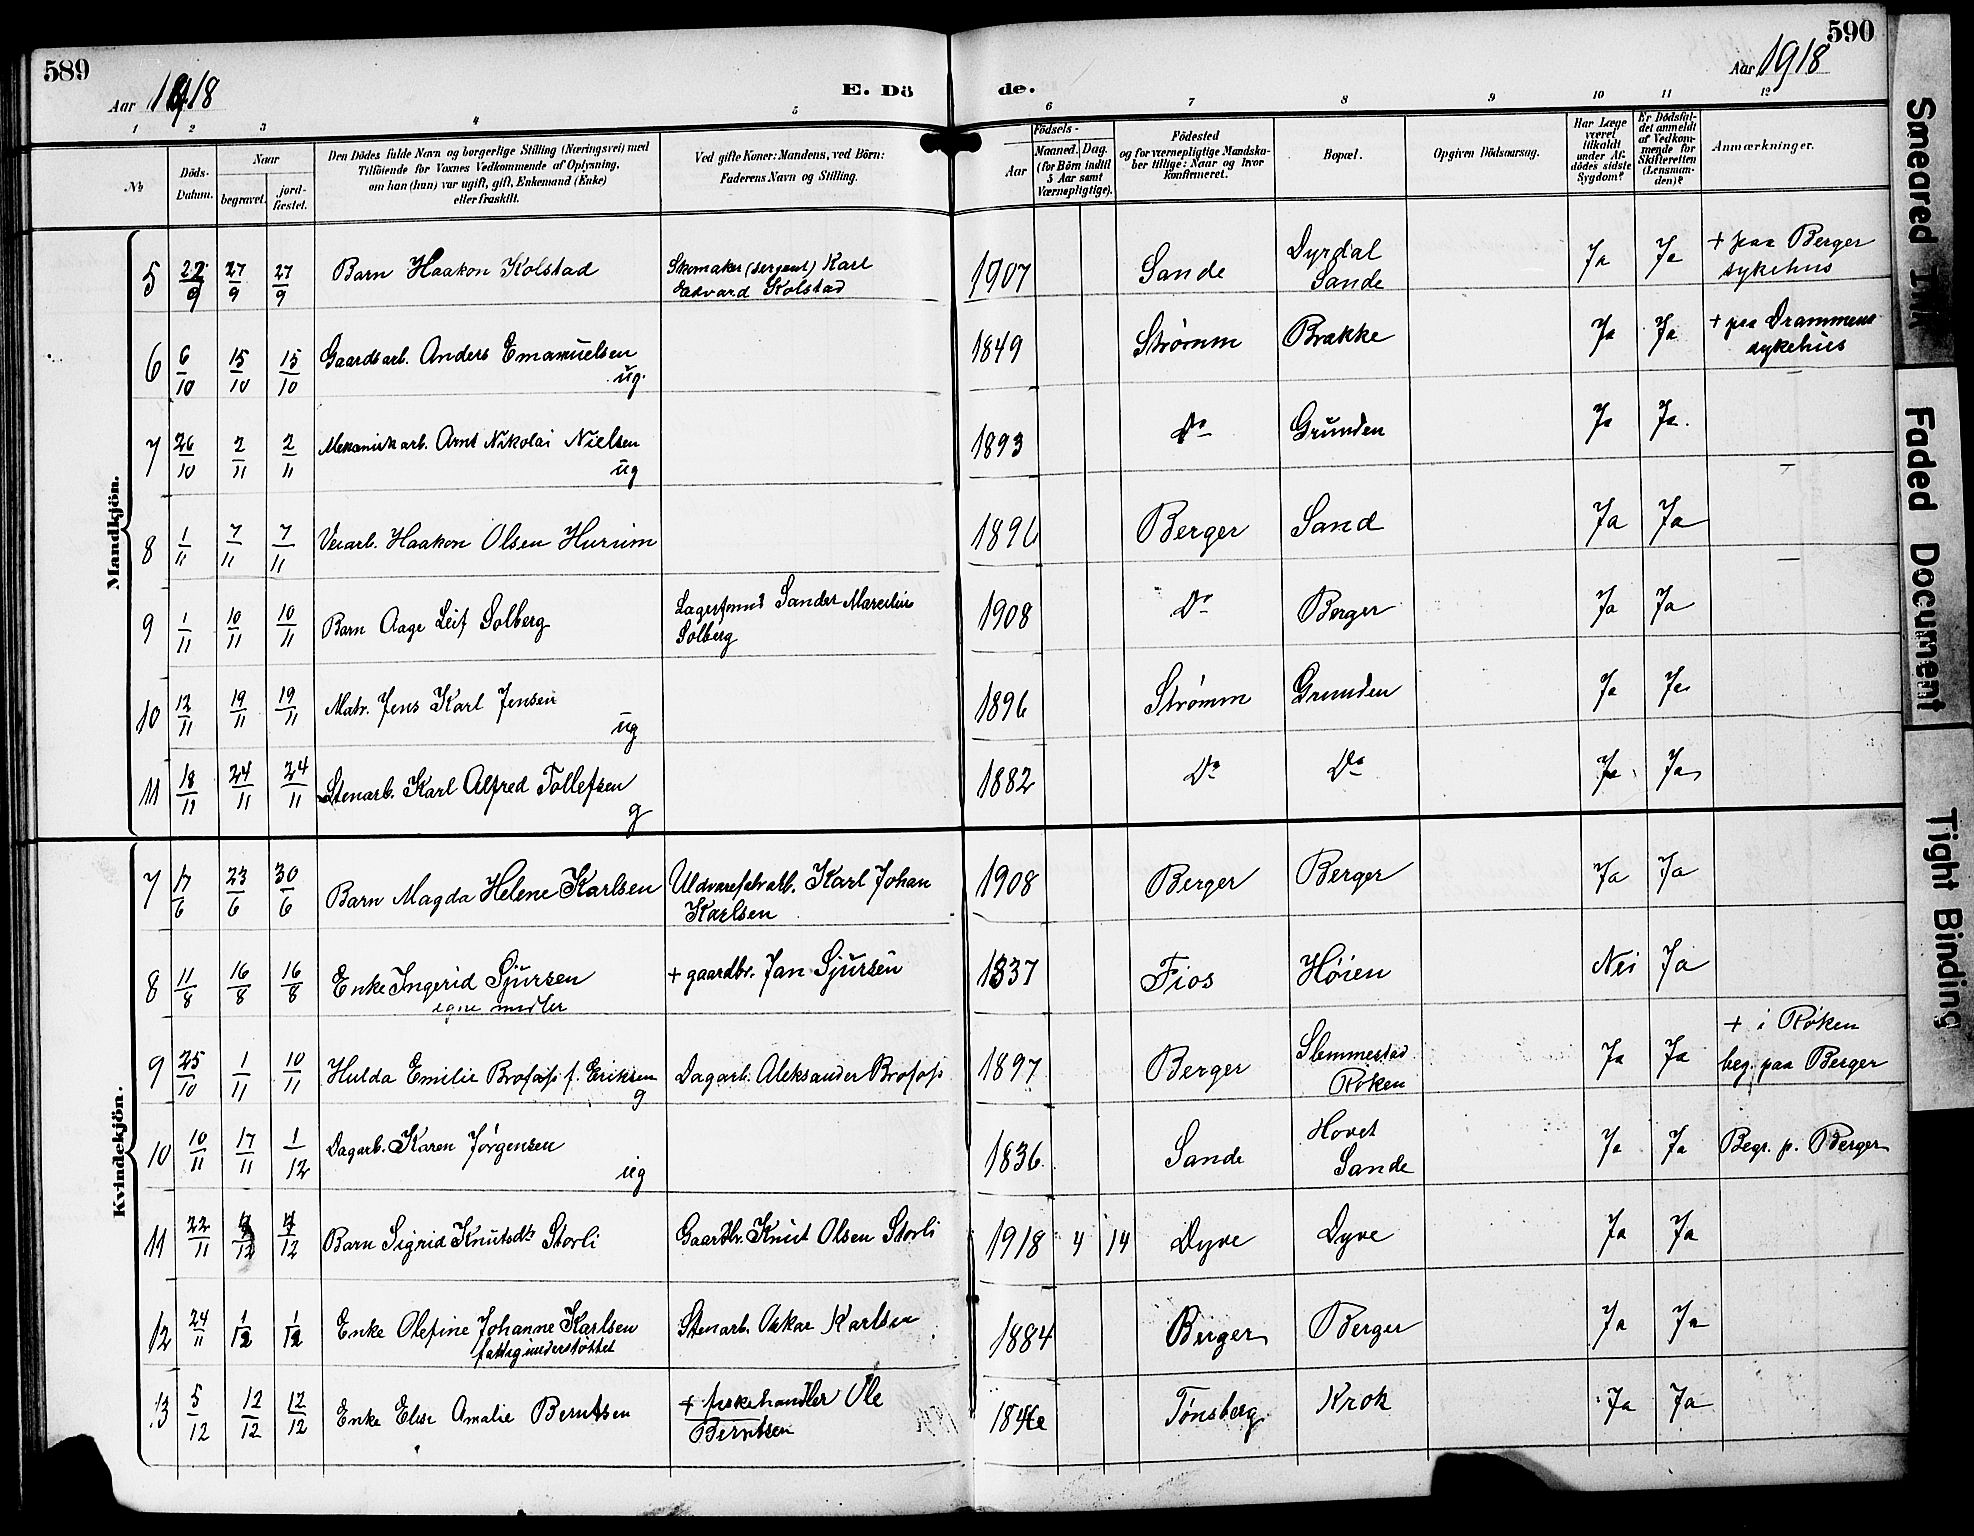 589
Aar 1918
E. Dö
de.
Aar 1918
590
1 2 3 4 5 6 7 8 9 10 11 12
No
Döds-Datum.
Naar
begravet.
jord-fæstet.
Den Dödes fulde Navn og borgerlige Stilling (Næringsvei) med
Tilföiende for Voxnes Vedkommende af Oplysning,
om han (hun) var ugift, gift, Enkemand (Enke)
eller fraskilt.
Ved gifte Koner: Mandens, ved Börn:
Faderens Navn og Stilling.
Födsels-
Aar
Maaned. Dag.
(for Börn indtil
5 Aar samt
Værnepligtige).
Födested
og for værnepligtige Mandska-
ber tillige: Naar og hvor
konfirmeret.
Bopæl.
Opgiven Dödsaarsag.
Har Læge
været
tilkaldt
under Af-
dödes sidste
Sygdom?
Er Dödsfal-
det anmeldt
af Vedkom-
mende for
Skifteretten
(Lensman-
den)?
Anmærkninger.
Mandkjön.
5 22/9 27/9 27/9 Barn Haakon Kolstad Skomaker (sergent) Karl Edvard Kolstad 1907 Sande Dyrdal Sande Ja Ja + paa Berger sykehus
6 6/10 15/10 15/10 Gaardsarb. Anders Emanuelsen ug. 1849 Strømm Brække Ja Ja + paa Drammens sykehus
7 26/10 2/11 2/11 Mekaniskarb. Arnt Nikolai Nielsen ug 1893 Do Grunden Ja Ja.
8 1/11 7/11 7/11 Veiarb. Haakon Olsen Hurum 1896 Berger Sand Ja Ja
9 1/11 10/11 10/11 Barn Aage Leif Solberg Lagerformd Sander Marcelius Solberg 1908 Do Berger Ja Ja
10 12/11 19/11 19/11 Matr. Jens Karl Jensen ug 1896 Strømm Grunden Ja Ja
11 18/11 24/11 24/11 Stenarb. Karl Alfred Tollefsen g 1882 Do Do Ja Ja
Kvindekjön.
7 17/6 23/6 30/6 Barn Magda Helene Karlsen Uldvarefabrarb. Karl Johan Karlsen 1908 Berger Berger Ja Ja
8 11/8 16/8 16/8 Enke Ingerid Sjursen egne midler + gaardbr. Jan Sjursen 1837 Fios Høien Nei Ja
9 25/10 1/11 10/11 Hulda Emilie Brofoss f. Eriksen g Dagarb. Aleksander Brofoss 1897 Berger Slemmestad Røken Ja Ja + i Røken beg. paa Berger
10 10/11 17/11 1/12 Dagarb. Karen Jørgensen ug 1836 Sande Hovet Sande Ja Ja Begr. p. Berger
11 22/11 /12 /12 Barn Sigrid Knutsdtr Storli Gaardbr. Knut Olsen Storli 1918 4 14 Dyve Dyve Ja Ja
12 24/11 1/12 1/12 Enke Olefine Johanne Karlsen fattigunderstøttet Stenarb. Oskar Karlsen 1884 Berger Berger Ja Ja
13 5/12 12/12 12/12 Enke Elise Amalie Berntsen + fiskehandler Ole Berntsen 1846 Tønsberg Krok Ja Ja
Smeared Ink
Faded Document
Tight Binding